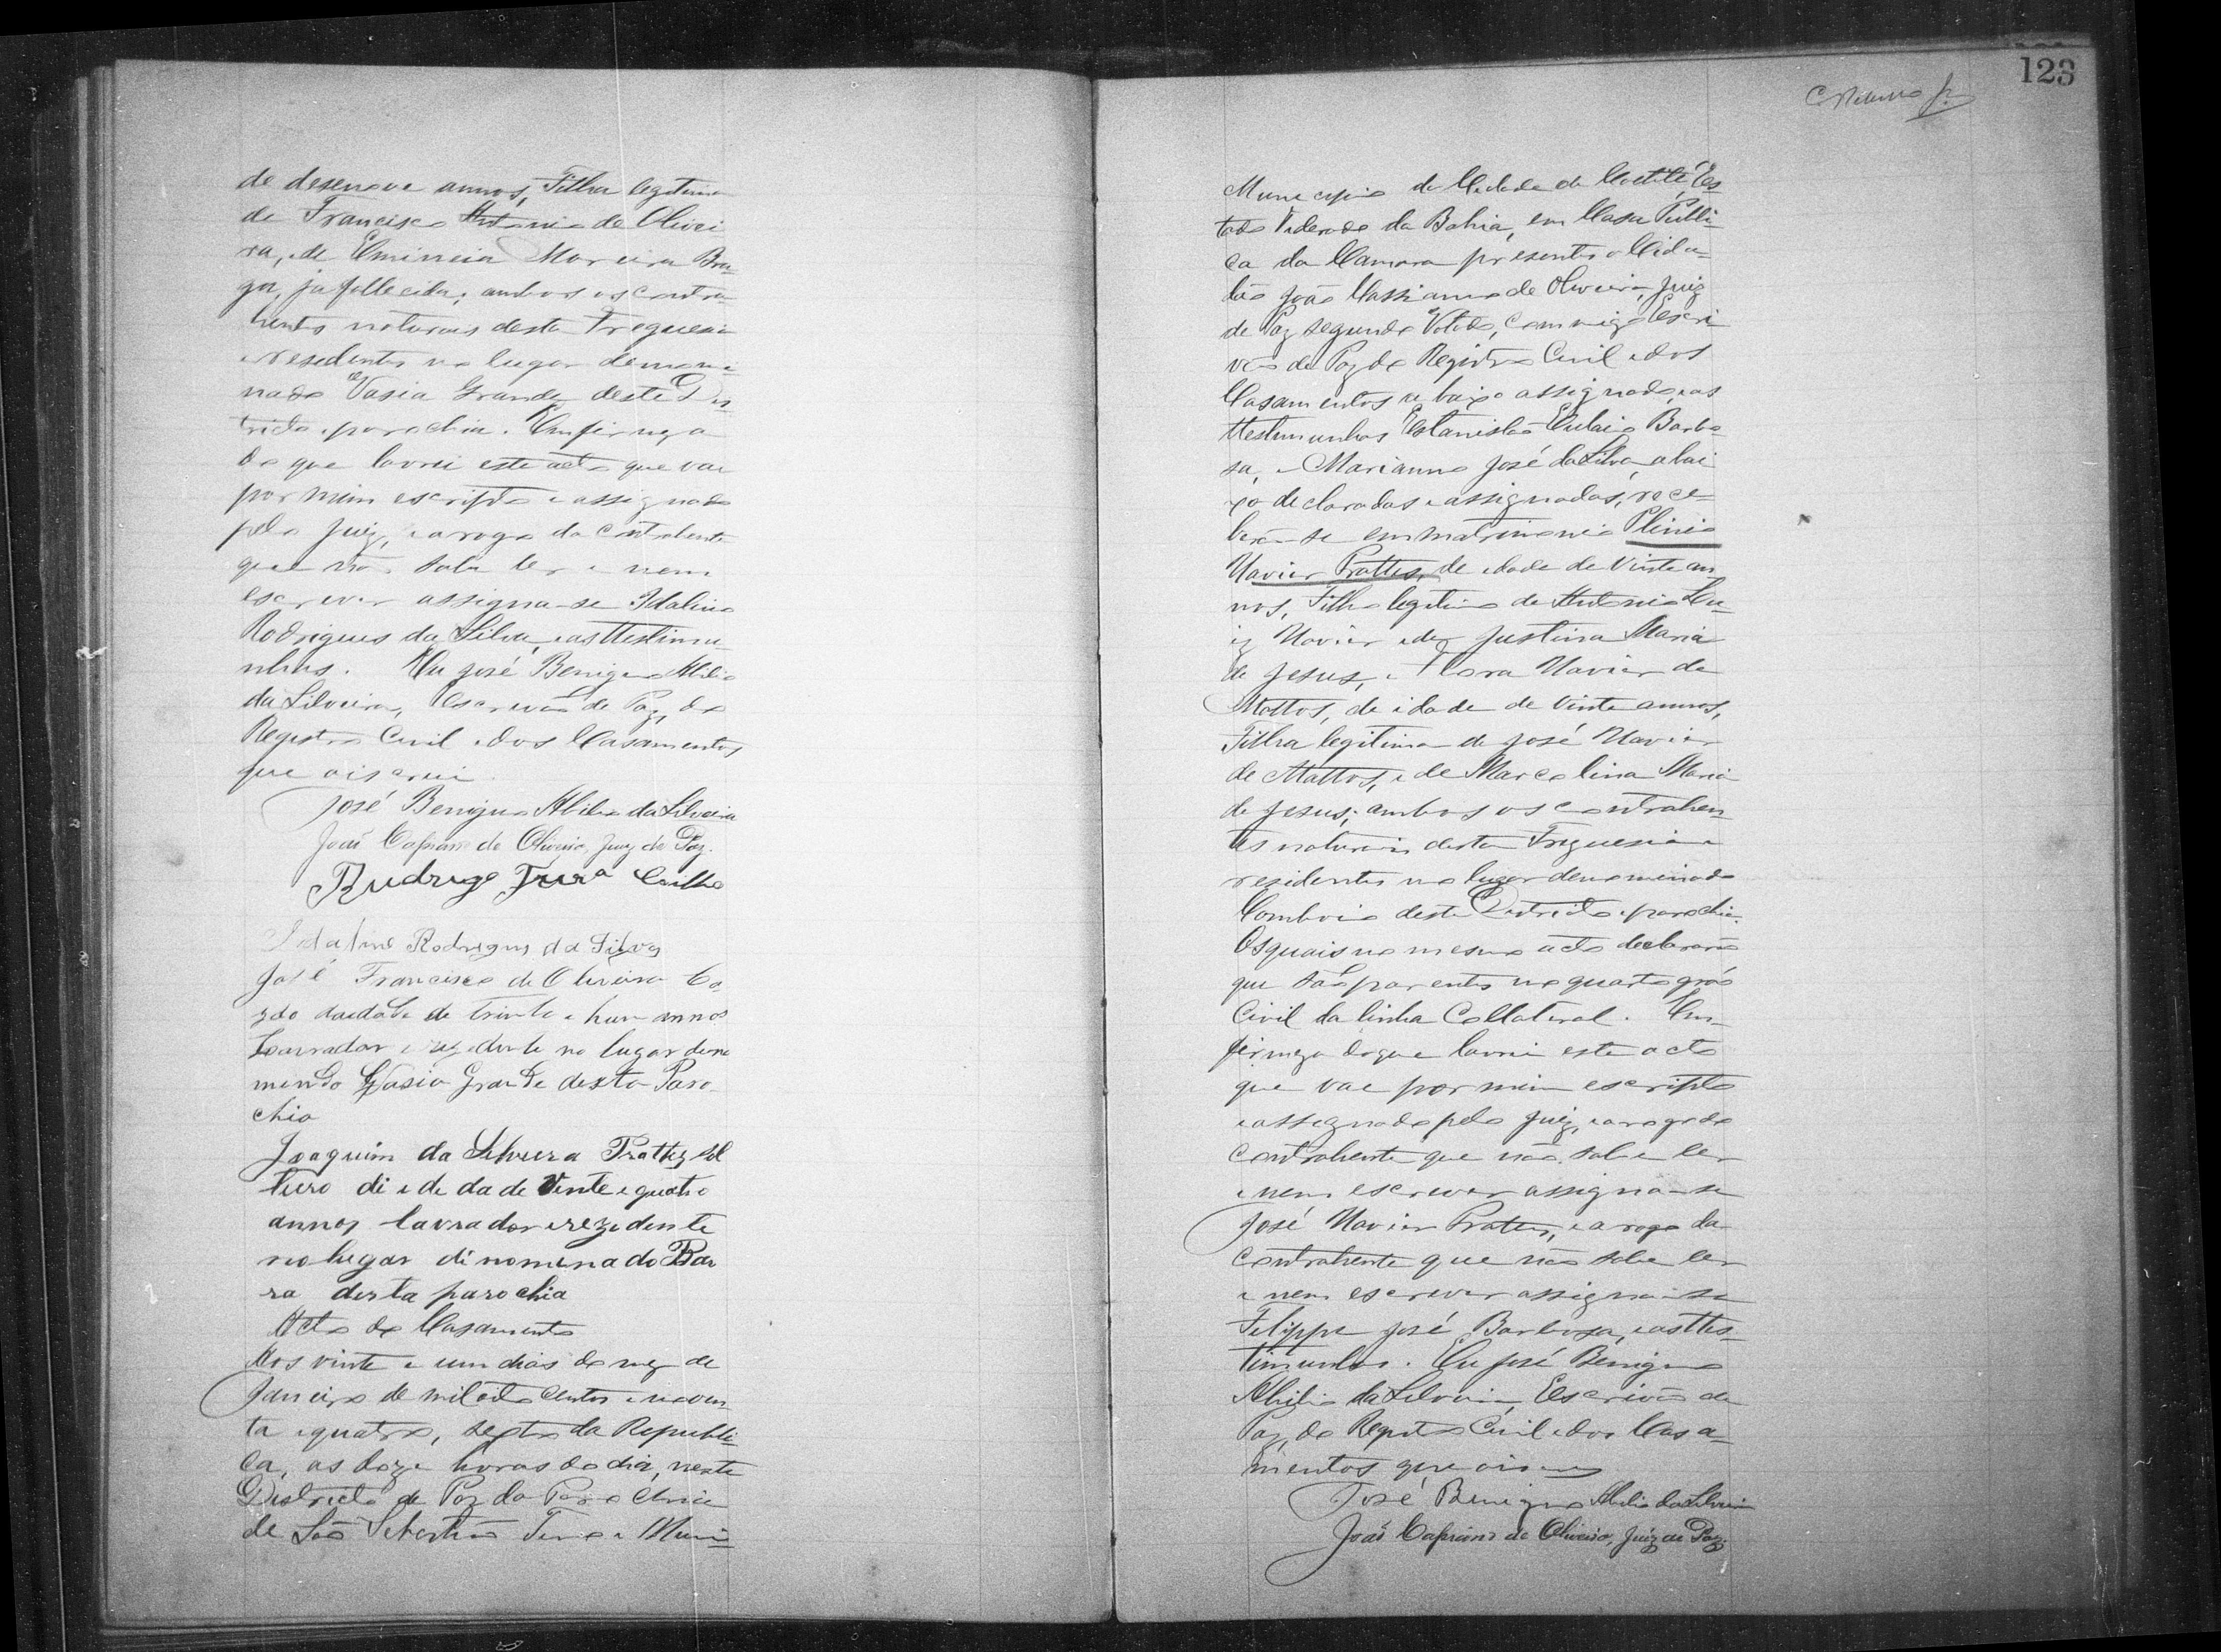 de desenove annos, Filha legitima
de Francisco Antonio de Olivei
ra, e de Eminencia Moreira Bra-
ga, ja fallecida; ambos os contra-
hentes naturaes desta Freguesia
e residentes no lugar denomi-
nado Vasia Grande, deste Dis
tricto e parochia. Em firmeza
do que lavrei este acto que vae
por mim escripto e assignado
pelo Juiz, e a rogo da contrahente
que não sabe ler e nem
escrever assigna-se Idalino
Rodrigues da Silva, e as ttestimu-
nhas. Eu José Benigno Abilio
da Silveira, Escrivão de Paz, do
Registro Civil e dos Casamentos
que o iscrevi.
José Benigno Abilio da Silveira
João Cassiano de Oliveira, Juiz de Paz.
Rudrigo Frr.ª Coilho
Idalino Rodrigues da Silva
José Francisco de Oliveira Ca-
zdo daidade de trinta e hum annos
Lavrador e rezidente no lugar deno
minado Vasia Grande desta Paro-
chia
Joaquim da Silveira Prattes sol
tiero di edade de Vinte e quatro
annos lavrador e rezidente
no lugar dinominado Bar
ra desta parochia
Acto de Casamento
Aos vinte e um dias do mez de
Janeiro de mil oito centos e noven-
ta e quatro, sexto da Republi-
ca, as doze horas do dia, neste
Districto de Paz da Parochia
de São Sebastião Termo e Muni-
123
Municipio da Cidade de Caetité Es
tado Federado da Bahia, em Casa Publi-
ca da Camara presentes o Cida-
dão João Cassiano de Oliveira, Juiz
de Paz segundo Votado, commigo Escri
vão de Paz do Registro Civil e dos
Casamentos abaixo assignado, e as
ttestemunhas Estanislão Eulaio Barbo
sa, e Marianno José da Silva, abai
xo declaradas e assignadas, rece-
berão-se em matrimonio Plinio
Xavier Prattes, de idade de Vinte an
nos, Filho legitimo de Antonio Lu-
iz Xavier e de Justina Maria
de Jesus, e Flora Xavier de
Mattos, de idade de Vinte annos,
Filha legitima de José Xavier
de Mattos, e de Marcolina Maria
de Jesus; ambos os contrahen
tes naturaes desta Freguesia e
residentes no lugar denominado
Comboio deste Districto e parochia.
Os quais no mesmo acto declararão
que são parentes no quarto gráo
Civil da linha Collateral. Em
firmeza do que lavrei este acto
que vae por mim escripto
e assignado pelo Juiz, e a rogo do
contrahente que não sabe ler
e nem escrever assigna-se
José Xavier Prattes, e a rogo da
contrahente que não sabe ler
e nem escrever assigna-se
Filippe José Barbosa, e as ttes-
timunhas. Eu José Benigno
Abilio da Silveira, Escrivão de
Paz, do Registro Civil e dos Casa-
mentos que o iscrevi
José Benigno Abilio da Silveira
João Cassiano de Oliveira, Juiz de Paz.